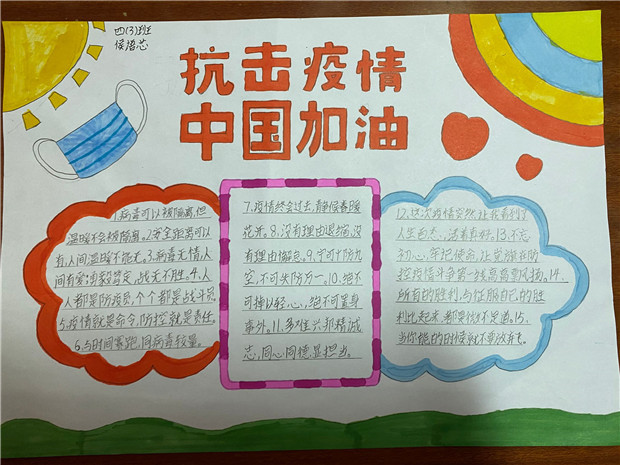 四(3)班
侯语芯
抗击疫情
中国加油
1.病毒可以被隔离,但
温暖不会被隔离。2.安全距离可以
有,人间温暖不能无。3.病毒无情,人
间有爱;坚定,战无不胜。4.人
人都是防疫员,个个都是战斗员。
5.疫情就是命令,防控就是责任。
6.与时间赛跑,同病毒较量。
7.疫情终会过去,静候春暖
花开。8.没有理由退缩,没
有理由懈怠。9.宁可十防九
空,不可失防万一。10.绝不
可掉以轻心,绝不可置身
事外。11.多难兴邦精诚
志,同心同德显担当。
12.这次疫情突然让我看到了
人生百态,活着真好。13.不忘
初心、牢记使命,让党旗在防
控疫情斗争第一线高高飘扬。14.
所有的胜利,与征服自己的胜
利比起来,都是微不足道。15.
当你能的时候就不要放弃。